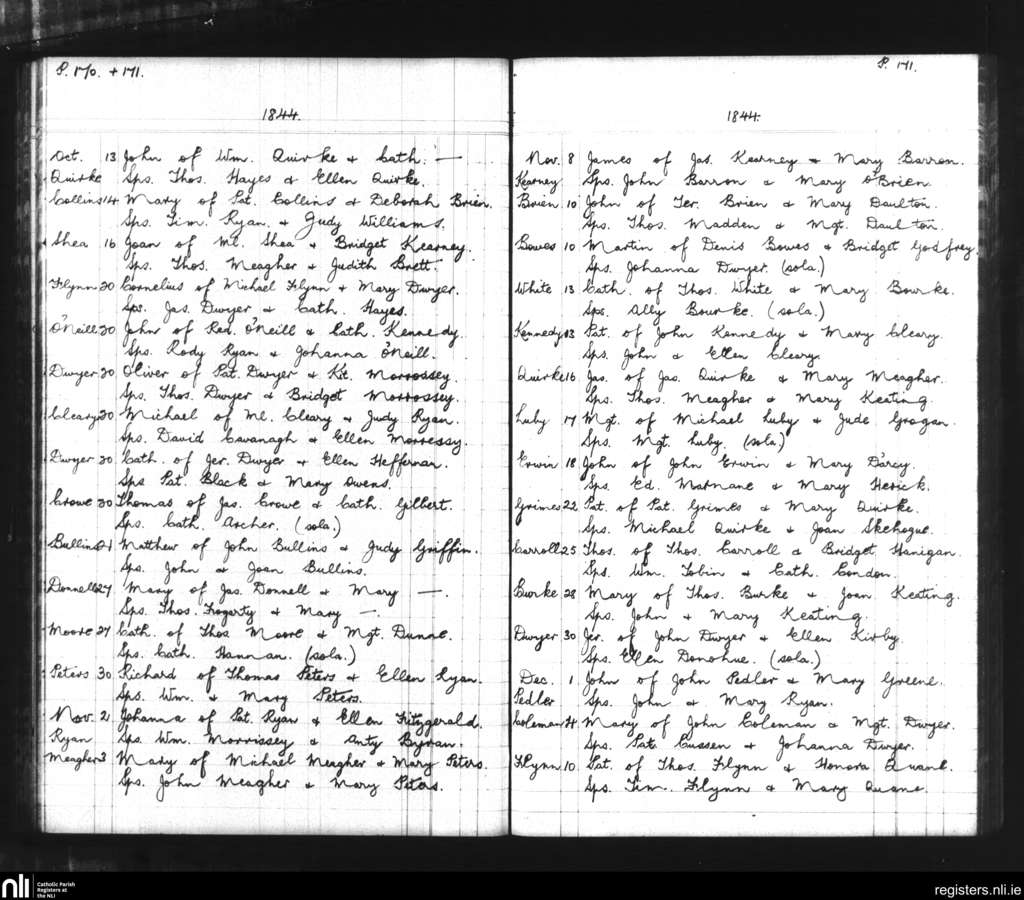 P. 170. + 171.
1844.
Oct. 13 John of Wm. Quirke & Cath. —
Quirke Sps. Thos. Hayes & Ellen Quirke.
Collins 14 Mary of Pat. Collins & Deborah Brien.
Sps. Tim. Ryan. & Judy Williams.
Shea 16 Joan of Ml. Shea & Bridget Kearney.
Sps. Thos. Meagher & Judith Brett.
Flynn 20 Cornelius of Michael Flynn & Mary Dwyer.
Sps. Jas. Dwyer & Cath. Hayes.
O'Neill 20 John of Red. O'Neill & Cath. Kennedy.
Sps. Rody Ryan & Johanna O'Neill.
Dwyer 20 Oliver of Pat. Dwyer & Kit. Morrossey.
Sps. Thos. Dwyer & Bridget Morrossey.
Cleary 20 Michael of Ml. Cleary & Judy Ryan.
Sps. David Cavanagh & Ellen Morressy.
Dwyer 20 Cath. of Jer. Dwyer & Ellen Heffernan.
Sps Pat. Black & Mary Owens.
Crowe 20 Thomas of Jas. Crowe & Cath. Gilbert.
Sps. Cath. Archer. (sola.)
Bullins 21 Matthew of John Bullins & Judy Griffin.
Sps. John & Joan Bullins.
Donnell 27 Mary of Jas. Donnell & Mary —.
Sps. Thos. Fogarty & Mary —.
Moore 27 Cath. of Thos Moore & Mgt. Dunne.
Sps. Cath. Hannan. (sola.)
Peters 30 Richard of Thomas Peters & Ellen Ryan.
Sps. Wm. & Mary Peters.
Nov. 2 Johanna of Pat. Ryan & Ellen Fitzgerald.
Ryan Sps. Wm. Morrissey & Anty Byran.
Meagher 3 Mary of Michael Meagher & Mary Peters.
Sps. John Meagher & Mary Peters.
P. 171.
1844.
Nov. 8 James of Jas. Kearney & Mary Barron.
Kearney Sps. John Barron & Mary O'Brien.
Brien 10 John of Ter. Brien & Mary Daulton.
Sps. Thos. Madden & Mgt. Daulton.
Bowes 10 Martin of Denis Bowes & Bridget Godfrey.
Sps. Johanna Dwyer. (sola.)
White 13 Cath. of Thos. White & Mary Bourke.
Sps. Ally Bourke. (sola.)
Kennedy 13 Pat. of John Kennedy & Mary Cleary.
Sps. John & Ellen Cleary.
Quirke 16 Jas. of Jas. Quirke & Mary Meagher.
Sps. Thos. Meagher & Mary Keating.
Luby 17 Mgt. of Michael Luby & Jude Grogan.
Sps. Mgt. Luby. (sola.)
Erwin 18 John of John Erwin & Mary D'arcy.
Sps. Ed. Marnane & Mary Herick.
Grimes 22 Pat. of Pat. Grimes & Mary Quirke.
Sps. Michael Quirke & Joan Skehogue.
Carroll 25 Thos. of Thos. Carroll & Bridget Hanigan.
Sps. Wm. Tobin & Cath. Condon.
Burke 28 Mary of Thos. Burke & Joan Keating.
Sps. John & Mary Keating.
Dwyer 30 Jer. of John Dwyer & Ellen Kirby.
Sps. Ellen Donohue. (sola.)
Dec. 1 John of John Pedler & Mary Greene.
Pedler Sps. John & Mary Ryan.
Coleman 4 Mary of John Coleman & Mgt. Dwyer.
Sps. Pat. Cussen & Johanna Dwyer.
Flynn 10 Pat. of Thos. Flynn & Honora Quane.
Sps. Tim. Flynn & Mary Quane.
nli
Catholic Parish
Registers at
the NLI
registers.nli.ie